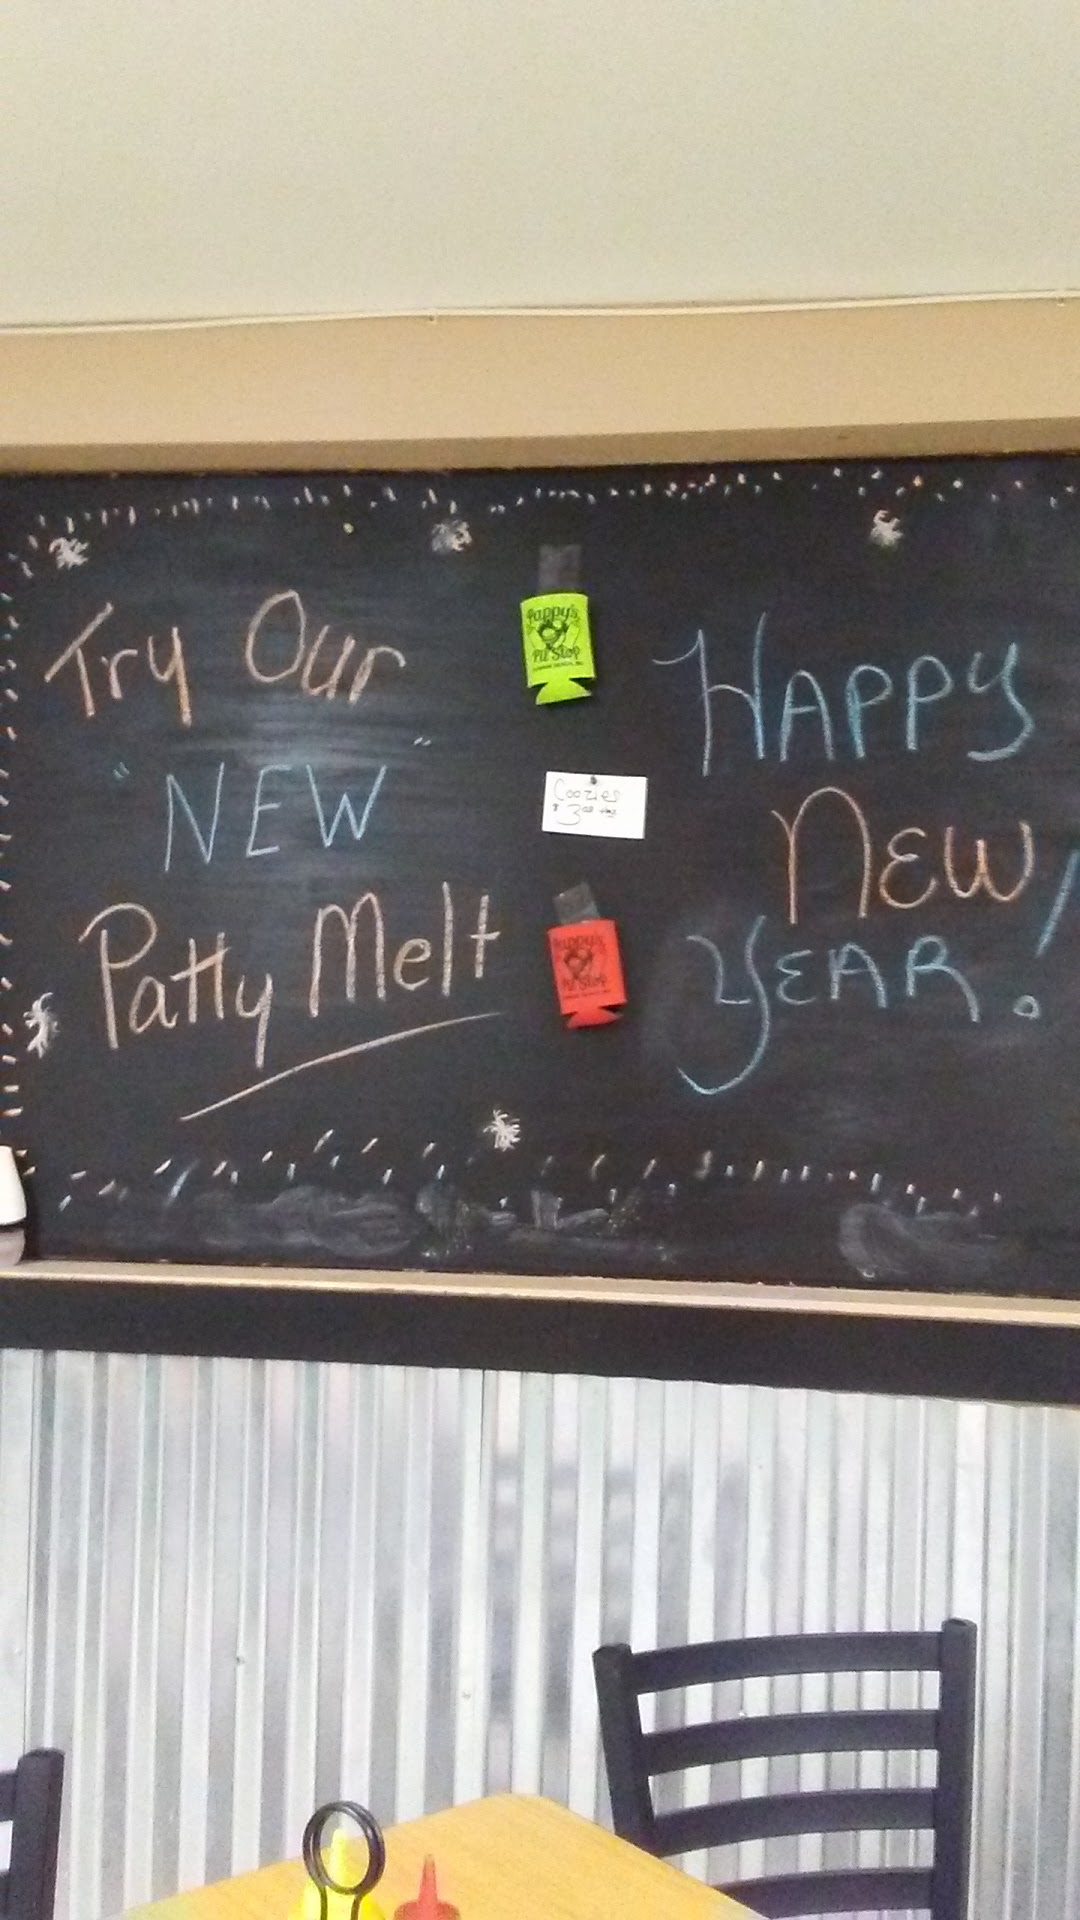 Try Our
"NEW"
Patty Melt
Pappy's
Pit Stop
Coozies
$3.00
Pappy's
Pit Stop
HAPPY
NEW
YEAR!